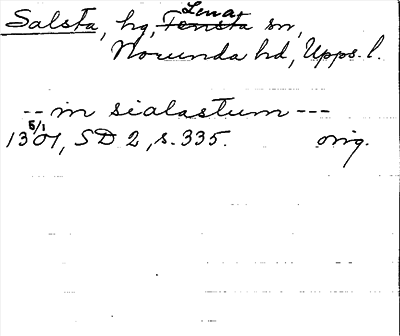 Lena
Salsta, hg, Tensta sn,
Norunda hd, Upps. l.
-- in sialastum ---
5/1
1301, SD 2, s. 335. orig.